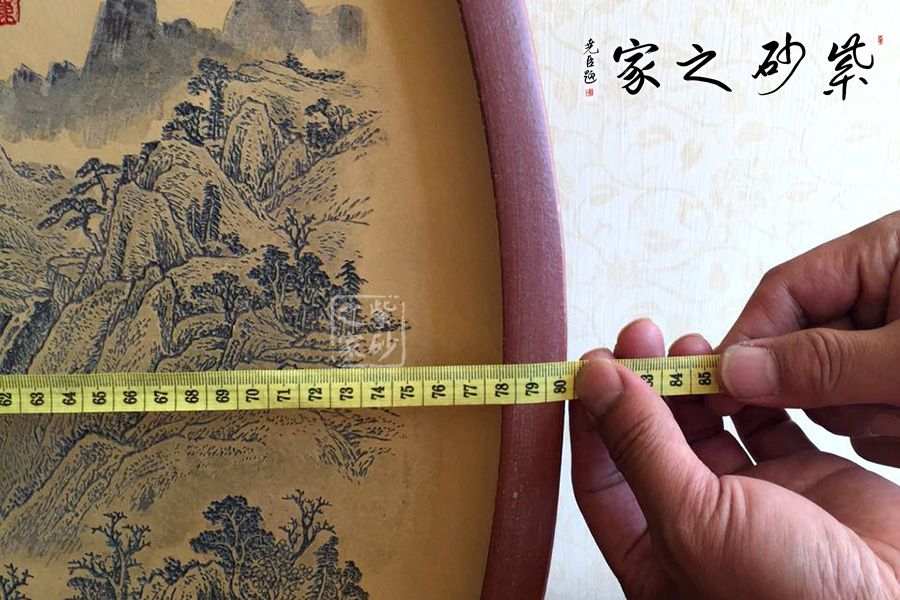 紫砂之家
尧臣题
紫砂之家
62 63 64 65 66 67 68 69 70 71 72 73 74 75 76 77 78 79 80 83 84 85